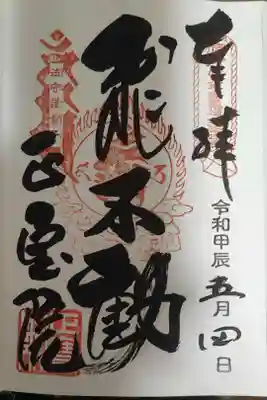 奉拝
令和甲辰五月四日
飛不動
正宝院